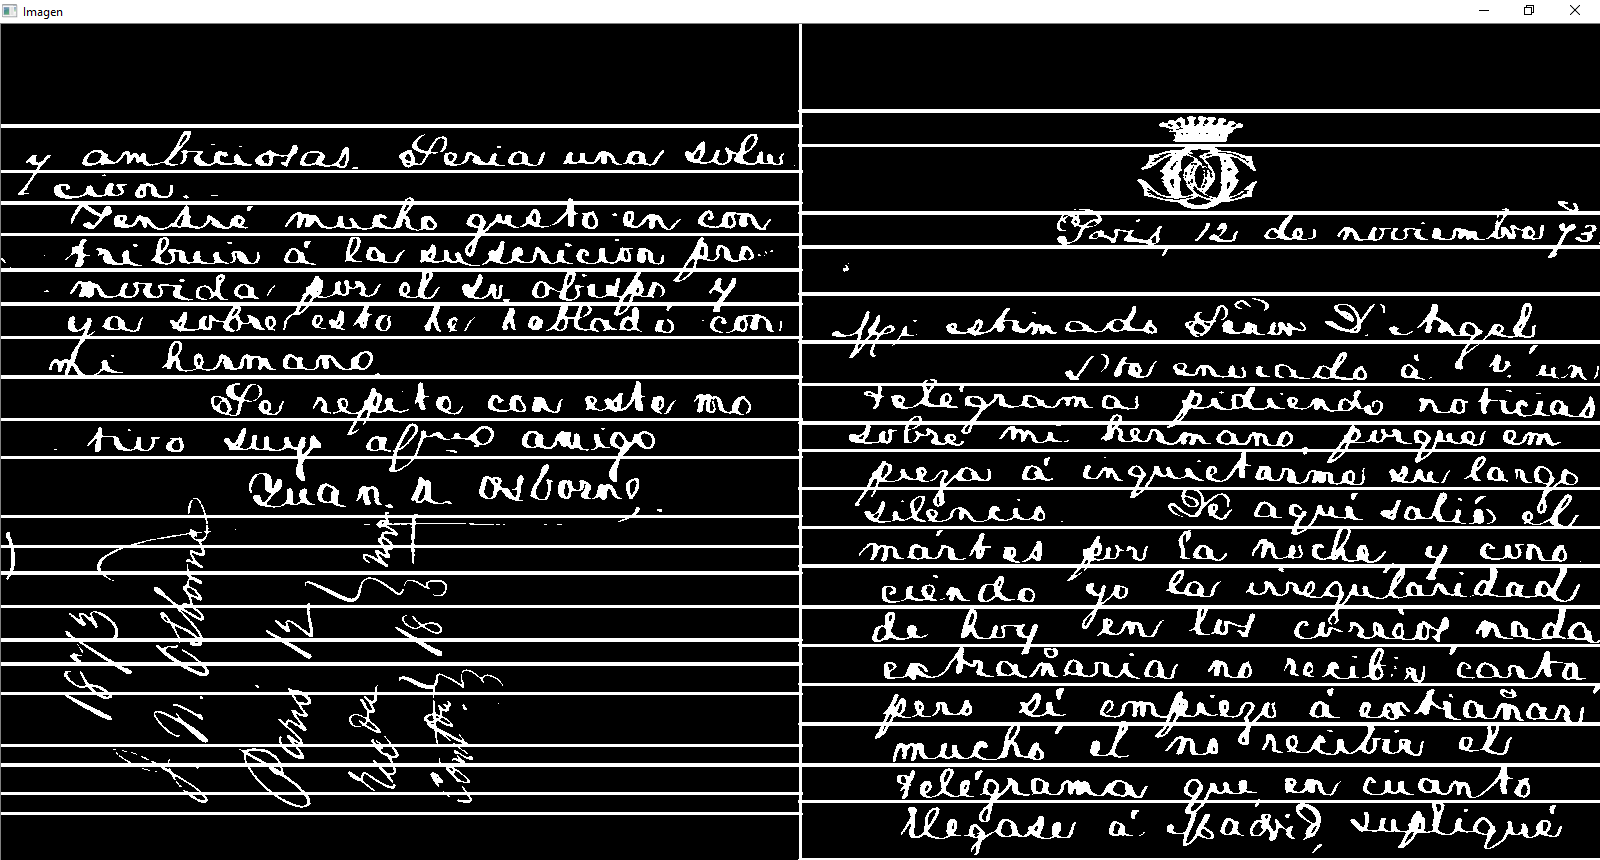 Imagen
y ambiciosas. Seria una solu
cion.
Tendré mucho gusto en con
tribuir á la suscricion pro
movida por el Sr. obispo y
ya sobre esto he hablado con
mi hermano.
Se repite con este mo
tivo suyo afmo amigo
Juan N. Osborne
1873
J. N. Osborne
Paris 12 nov
18 73
Paris, 12 de noviembre 73.
Mi estimado Señor D. Angel
He enviado á V. un
telégrama pidiendo noticias
sobre mi hermano, porque em
pieza á inquietarme su largo
siléncio. De aquí salió el
mártes por la noche, y cono
ciendo yo la irregularidad
de hoy en los corréos nada
extrañaria no recibir carta
pero sí empiezo á extrañar
mucho el no recibir el
telégrama que en cuanto
llegase á Madrid, supliqué